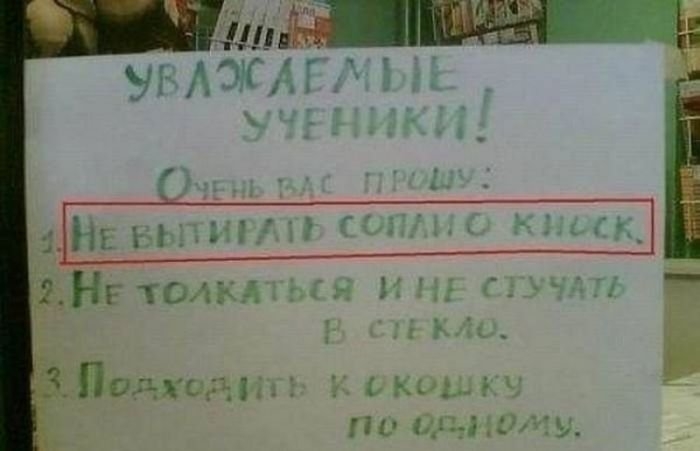 УВАЖАЕМЫЕ
УЧЕНИКИ!
ОЧЕНЬ ВАС ПРОШУ:
1. НЕ ВЫТИРАТЬ СОПЛИ О КИОСК.
2. НЕ ТОЛКАТЬСЯ И НЕ СТУЧАТЬ
В СТЕКЛО.
3. ПОДХОДИТЬ К ОКОШКУ
ПО ОДНОМУ.